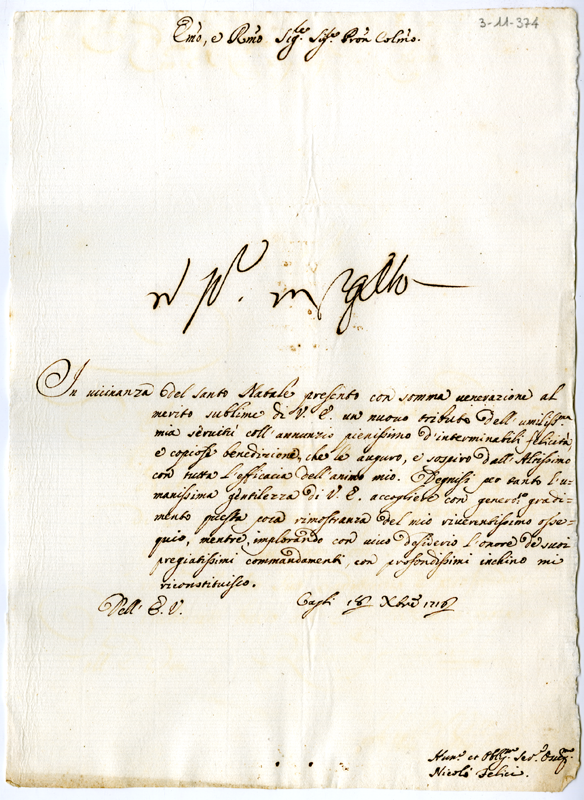 3-11-374
Emo, e Rmo Sigre. Sigr. Pron Colmo.
In vicinanza del santo Natale presento con somma venerazione al
merito sublime di V. E. un nuovo tributo dell'umilissma
mia servitù coll'annunzio pienissimo d'interminabili felicità,
e copiose benedizione, che le auguro, e sospiro dall'Altissimo
con tutta l'efficacia dell'animo mio. Degnisi per tanto l'u-
manissima gentilezza di V. E. accogliere con generoso gradi-
mento questa poca rimostranza del mio riverentissimo osse-
quio, mentre, implorando con vivo desiderio l'onore de suoi
pregiatissimi commandamenti, con profondissimi inchino mi
riconstituisco.
Dell' E. V. Cagli 18 Xbre 1716
Humo. et Obligmo Serre.
Nicolò Felici.